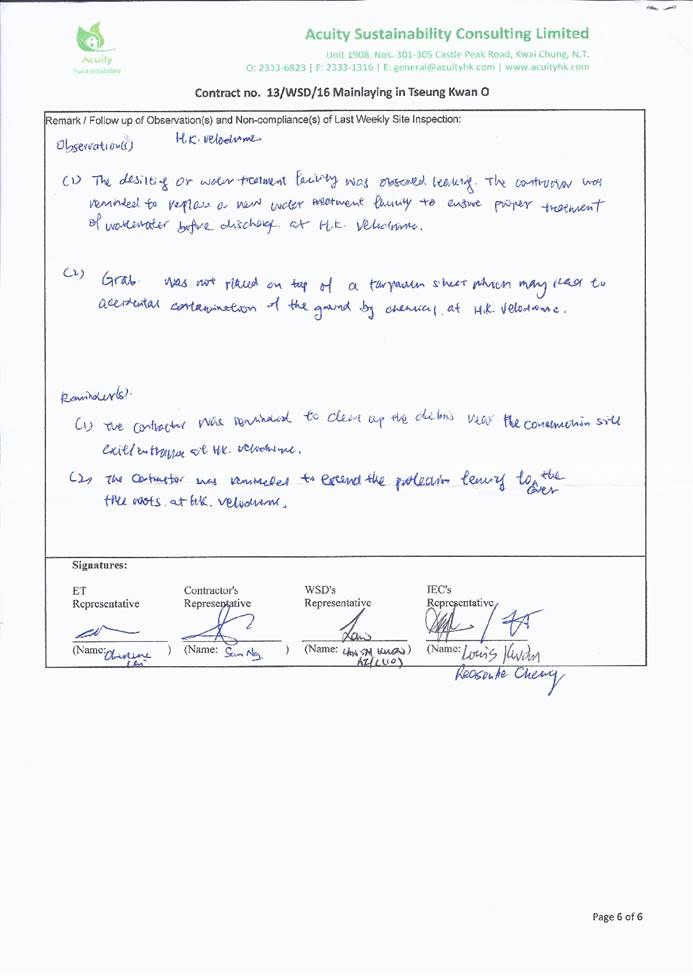 Acuity Sustainability Consulting Limited
Unit 1908, Nos. 301-305 Castle Peak Road, Kwai Chung, N.T.
O: 2333-6823 | F: 2333-1316 | E: general@acuityhk.com | www.acuityhk.com
Acuity
Sustainability
Contract no. 13/WSD/16 Mainlaying in Tseung Kwan O
Remark / Follow up of Observation(s) and Non-compliance(s) of Last Weekly Site Inspection:
Observation(s) H.K. Velodrome
(1) The desilting or water treatment facility was observed leaking. The contractor was
reminded to replace a new water treatment facility to ensure proper treatment
of wastewater before discharge at H.K. Velodrome.
(2) Grab was not placed on top of a tarpaulin sheet which may lead to
accidental contamination of the ground by chemical at H.K. Velodrome.
Reminder(s).
(1) The contractor was reminded to clean up the debris near the construction site
exit/entrance at H.K. Velodrome.
(2) The Contractor was reminded to extend the protection fencing to cover the
tree roots at H.K. Velodrome.
Signatures:
ET Contractor's WSD's IEC's
Representative Representative Representative Representative
(Name: ) (Name: Sam Ng ) (Name: ) (Name: Louis Kwan
Cheng
Page 6 of 6